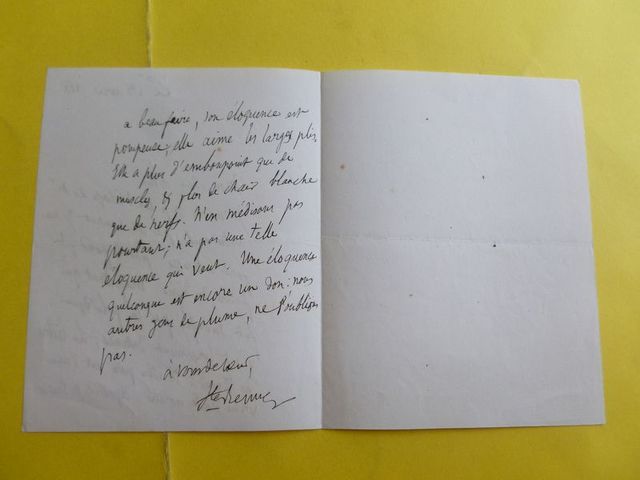 a beau faire, son éloquence est
pompeuse; elle aime les larges plis.
Elle a plus d'embonpoint que de
muscles, & plus de chair blanche
que de nerfs. N'en médisons pas
pourtant; n'a pas une telle
éloquence qui veut. Une éloquence
quelconque est encore un don: nous
autres gens de plume, ne l'oublions
pas.
à vous de coeur,
Ste Beuve